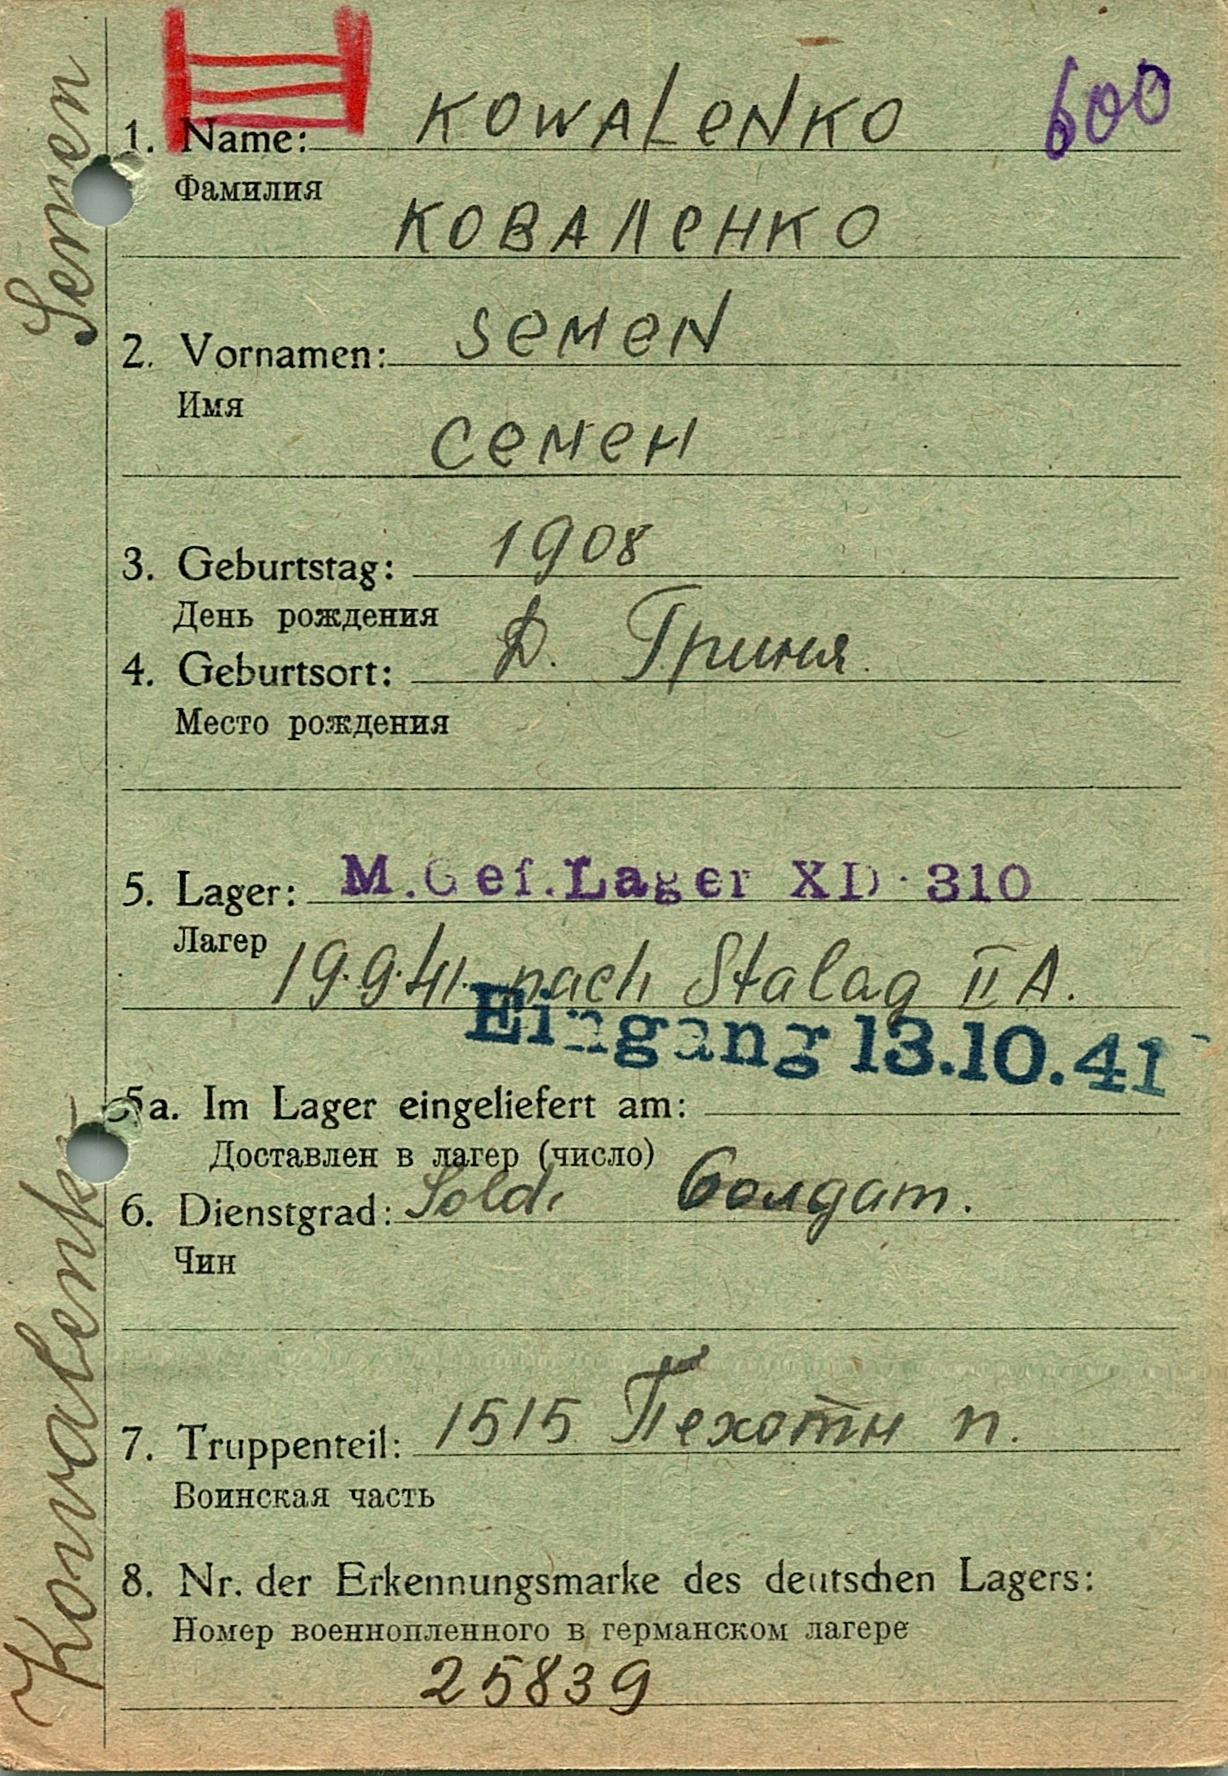 600
1. Name: KOWALENKO
Фамилия
КОВАЛЕНКО
2. Vornamen: SEMEN
Имя
СЕМЕН
3. Geburtstag: 1908
День рождения
4. Geburtsort: Д. Гриня.
Место рождения
5. Lager: M.Gef.Lager XD 310
Лагер
19.9.41. nach Stalag II A.
Eingang 13.10.41
5a. Im Lager eingeliefert am:
Доставлен в лагер (число)
6. Dienstgrad: Sold. Солдат.
Чин
7. Truppenteil: 1515 Пехотн п.
Воинская часть
8. Nr. der Erkennungsmarke des deutschen Lagers:
Номер военнопленного в германском лагере
25839
Kowalenko Semen